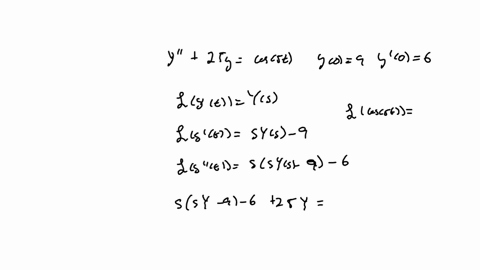 y'' + 25y = cos(5t)   y(0)=9   y'(0)=6
L(y(t))=Y(s)
L(cos(5t))=
L(y'(t))= sY(s)-9
L(y''(t))= s(sY(s)-9)-6
s(sY-9)-6 +25Y =